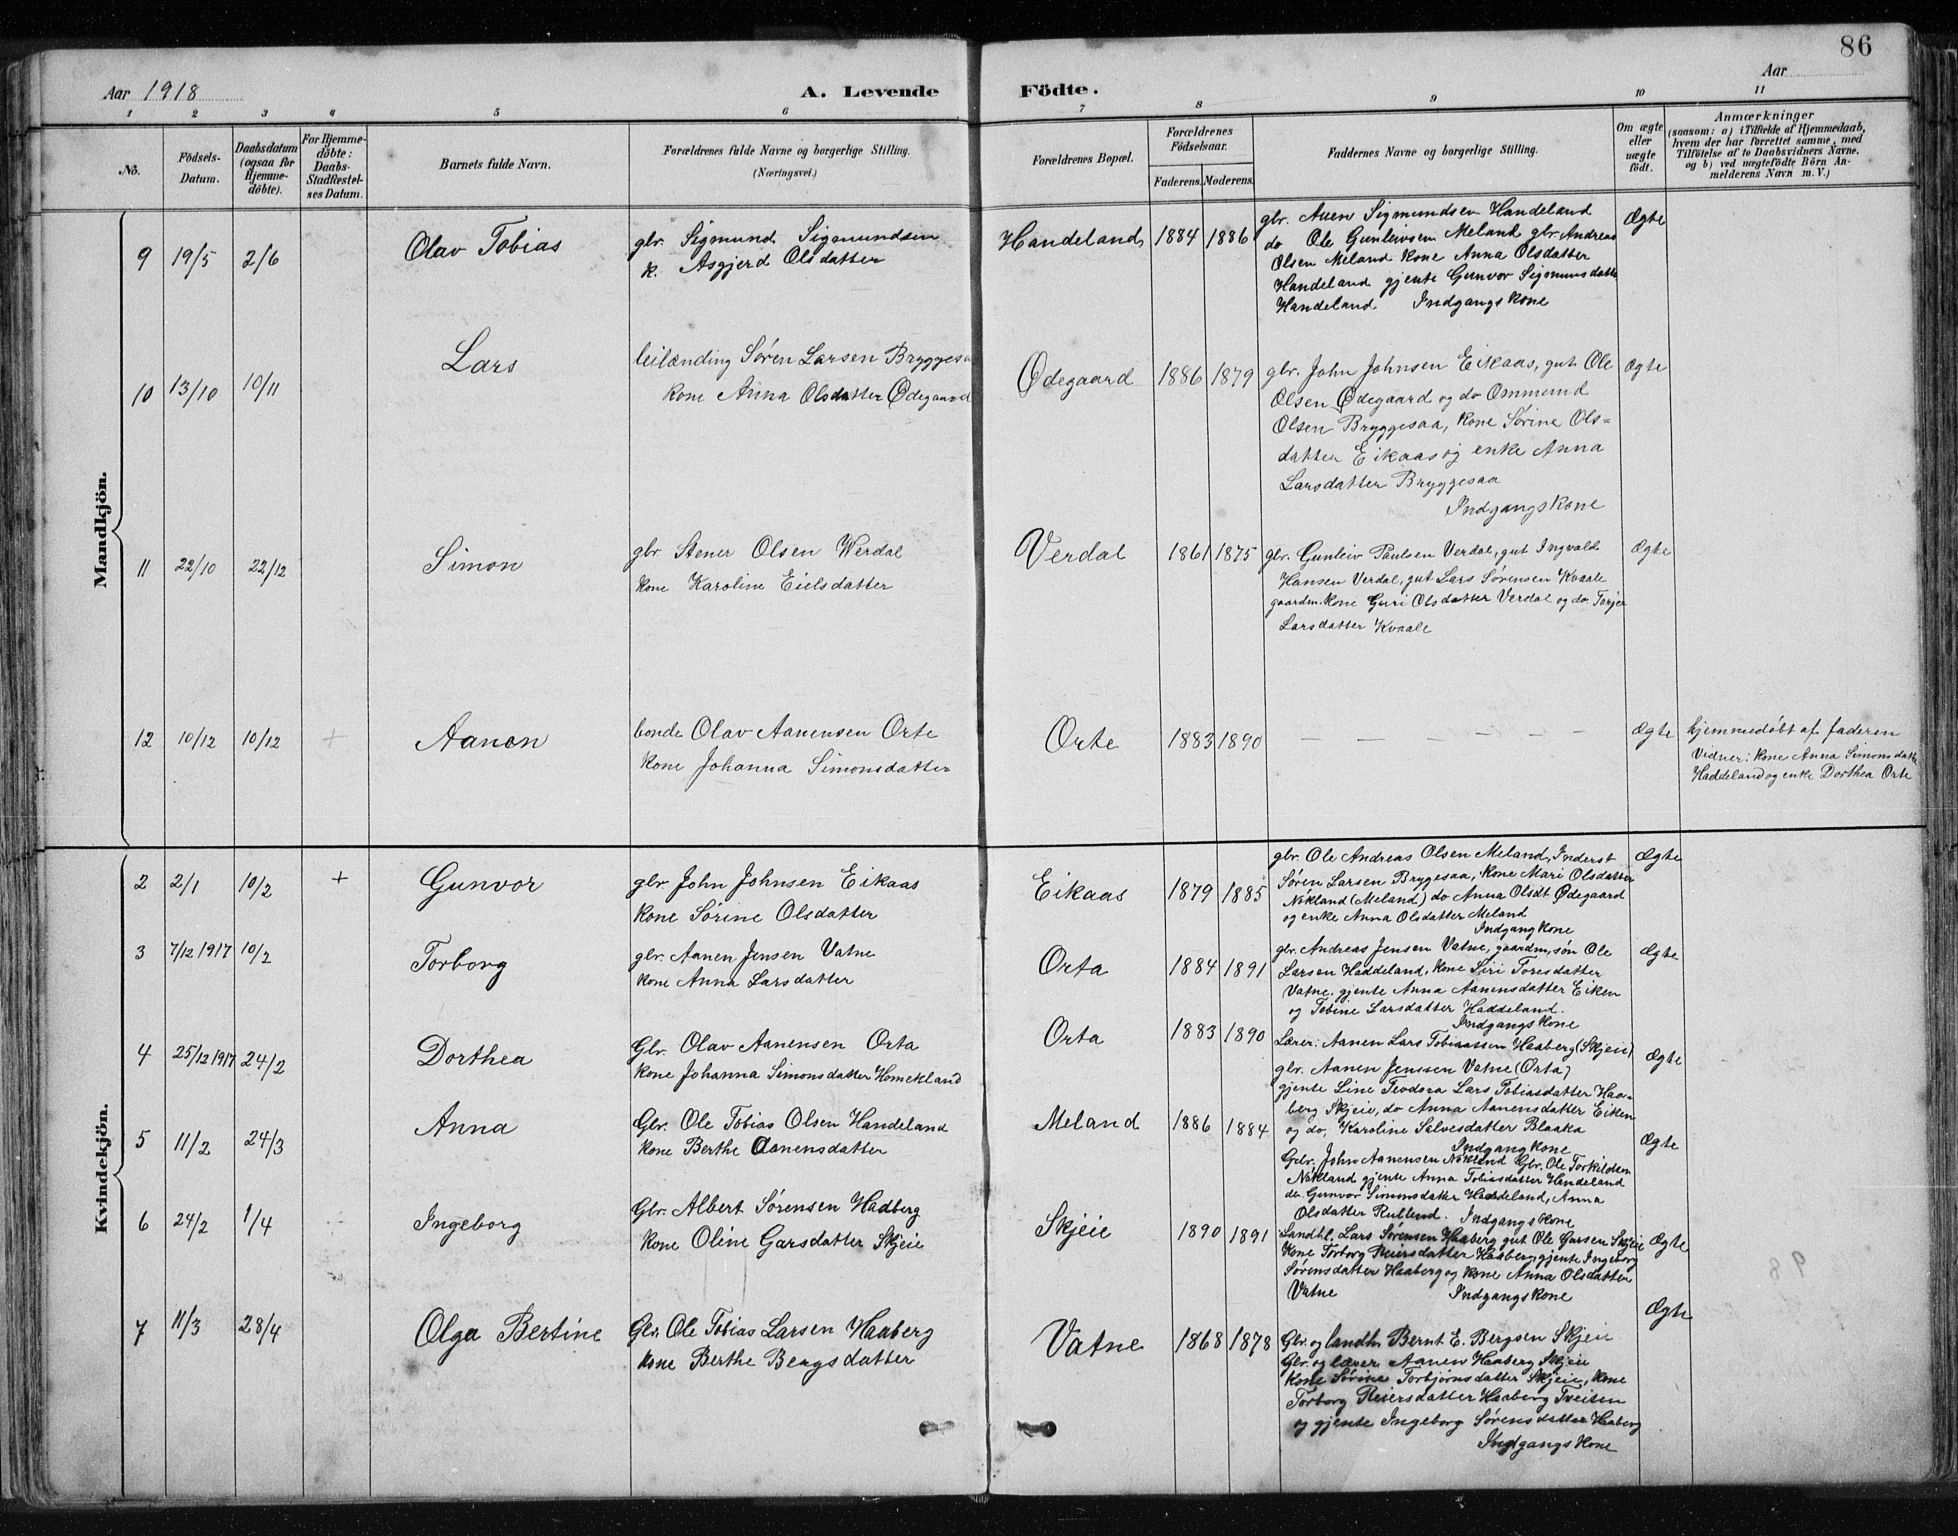 86
Aar 1918
A. Levende
Födte.
Aar
1 2 3 4 5 6 7 8 9 10 11
No.
Födsels-
Datum.
Daabsdatum
(ogsaa for
Hjemme-
döbte).
For Hjemme-
döbte:
Daabs-
Stadfæstel-
ses Datum.
Barnets fulde Navn.
Forældrenes fulde Navne og borgerlige Stilling.
(Næringsvei.)
Forældrenes Bopæl.
Forældrenes
Födselsaar.
Faderens. Moderens.
Faddernes Navne og borgerlige Stilling.
Om ægte
eller
uægte
födt.
Anmærkninger
(saasom: a) i Tilfælde af Hjemmedaab,
hvem der har forrettet samme, med
Tilföielse af to Daabsvidners Navne.
og b) ved uægtefödte Börn An-
melderens Navn m. V.)
Mandkjön.
9 19/5 2/6 Olav Tobias
gbr. Sigmund Sigmundsen
k. Asgjerd Olsdatter
Handeland 1884 1886
gbr. Auen Sigmundsen Handeland
do Ole Gunleivsen Meland gbr. Andreas
Olsen Meland Kone Anna Olsdatter
Handeland gjente Gunvor Sigmunsdatter
Handeland. Indgangskone
Ægte
10 13/10 10/11 Lars
leilænding Søren Larsen Bryggesaa
kone Anna Olsdatter Ødegaard
Ødegaard 1886 1879
gbr. John Johnsen Eikaas, gut Ole
Olsen Ødegaard og do Ommund
Olsen Bryggesaa, kone Sørine Ols=
datter Eikaas og enke Anna
Larsdatter Bryggesaa
Indgangskone
Ægte
11 22/10 22/12 Simon
gbr Stener Olsen Werdal
kone Karoline Eielsdatter
Verdal 1861 1875
gbr. Gunleiv Paulsen Verdal, gut Ingvald
Hansen Verdal, gut Lars Sørensen Kvaale
gaardm. kone Guri Olsdatter Verdal og do. Torjer
Larsdatter Kvaale
Ægte
12 10/12 10/12 + Aanen
bonde Olav Aanensen Orte
kone Johanna Simonsdatter
Orte 1883 1890
— — — — — — —
Ægte
hjemmedøbt af faderen
Vidner: kone Anna Simonsdatter
Haddeland og enke Dorthea Orte
Kvindekjön.
2 2/1 10/2 + Gunvor
gbr. John Johnsen Eikaas
kone Sørine Olsdatter
Eikaas 1879 1885
gbr. Ole Andreas Olsen Meland, Inderst
Søren Larsen Brygesaa, kone Mari Olsdatter
Nökland (Meland) do Anna Olsdt Ødegaard
og enke Anna Olsdatter Meland
Indgangkone
Ægte
3 7/12 1917 10/2 Torborg
gbr. Aanen Jensen Vatne
kone Anna Larsdatter
Orta 1884 1891
gbr. Andreas Jensen Vatne, gaardm. søn Ole
Larsen Haddeland, kone Siri Toresdatter
Vatne, gjente Anna Aanensdatter Eiken
og Tobine Larsdatter Haddeland.
Indgangskone
Ægte
4 25/12 1917 24/2 Dorthea
Gbr. Olav Aanensen Orta
kone Johanna Simonsdatter Homekland
Orta 1883 1890
Lærer: Aanen Lars Tobiassen Haaberg (Skjeie)
gbr. Aanen Jenssen Vatne (Orta)
gjente Line Teodora Lars Tobiasdatter Haa-
berg Skjeie, do Anna Aanensdatter Eiken
og do. Karoline Salvesdatter Blaaka
Indgangkone
Ægte
5 11/2 24/3 Anna
Gbr. Ole Tobias Olsen Handeland
kone Berthe Aanensdatter
Meland 1886 1884
Gbr. John Aanensen Nökland Gbr. Ole Torkildsen
Nökland gjente Anna Tobiasdatter Handeland
do. Gunvor Simonsdatter Haddeland, Anna
Olsdatter Rullend. Indgangskone
Ægte
6 24/2 1/4 Ingeborg
Gbr. Albert Sørensen Haaberg
kone Oline Garsdatter Skjeie
Skjeie 1890 1891
Landhl. Lars Sørensen Haaberg gut Ole Garsen Skjeie
kone Torborg Reiersdatter Haaberg, gjente Ingeborg
Sørensdatter Haaberg og kone Anna Olsdatter
Vatne Indgangskone
Ægte
7 11/3 28/4 Olga Bertine
Gbr. Ole Tobias Larsen Haaberg
kone Berthe Bergsdatter
Vatne 1868 1878
Gbr. og landh. Bernt E. Bergsen Skjeie
Gbr. og lærer Aanen Haaberg Skjeie
kone Sørine Torbjørnsdatter Skjeie, kone
Torborg Reiersdatter Haaberg Tveiten
og gjente Ingeborg Sørensdatter Haaberg
Indgangskone
Ægte